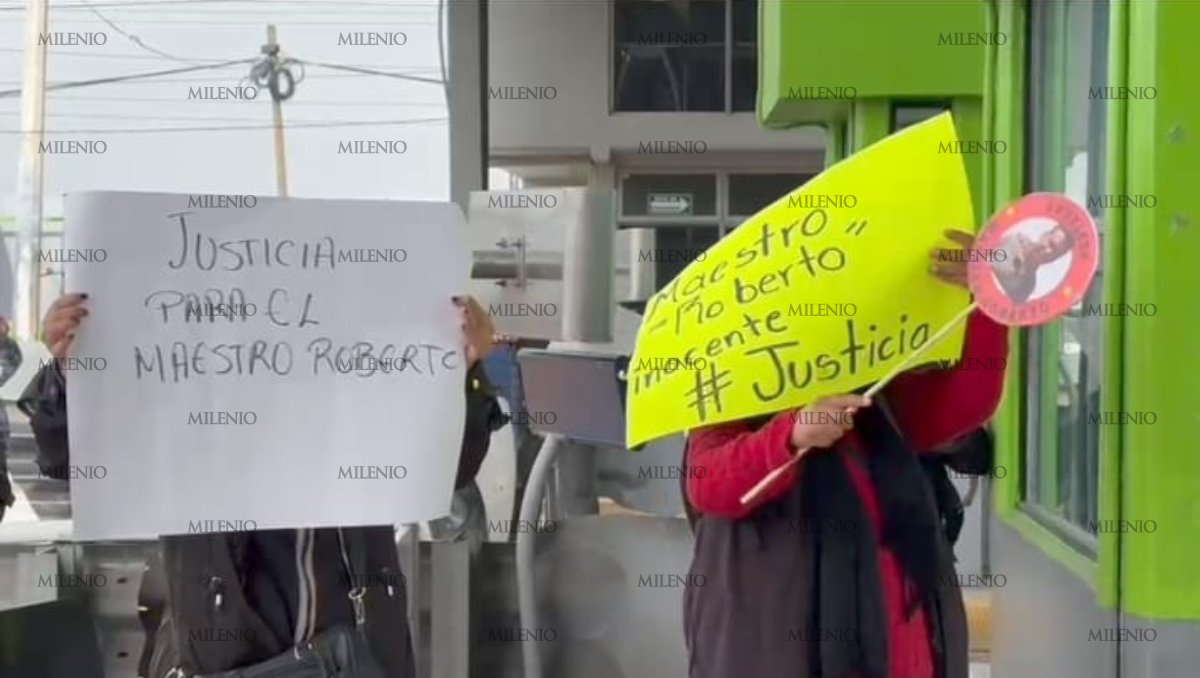 JUSTICIA
PARA EL
MAESTRO ROBERTO
Maestro
Roberto"
inocente
# Justicia
MILENIO